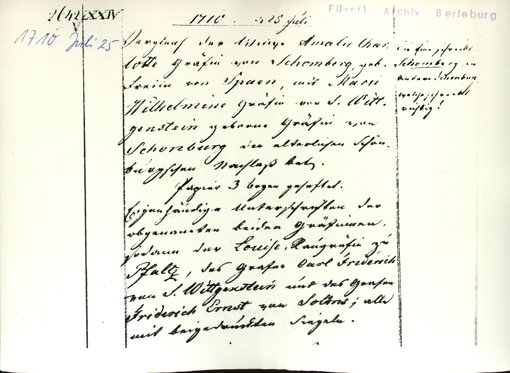 2642 XXIV
1710. 25 Juli
Fürstl. Archiv Berleburg
1710 Juli 25
Vergleich der Witwe Amalie Char
lotte Gräfin von Schomberg, geb.
Freiin von Spaen, mit Marie
Wilhelmine Gräfin von S. Witt-
genstein geborne Gräfin von
Schomburg den elterlichen Schön-
burgschen Nachlaß bet.
Papier 3 bogen geheftet.
Eigenhändige Unterschriften der
obgenannten beiden Gräfinnen
sodann der Louise, Raugräfin zu
Pfalz, des Grafen Carl Friderich
von S. Wittgenstein und des Grafen
Friderich Ernst von Solms; alle
mit beigedrückten Siegeln.
die Eine schreibt
Schomberg
andere
schreibt